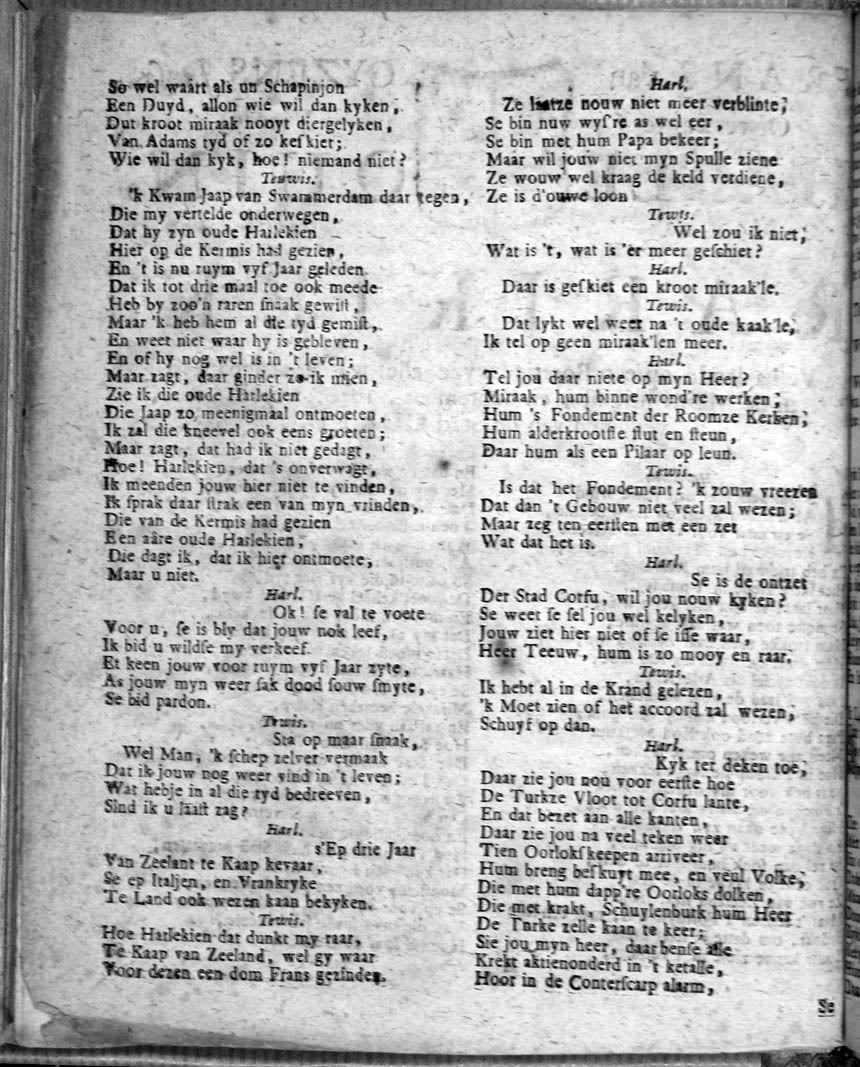 So wel waart als un Schapinjon
Een Duyd, allon wie wil dan kyken,
Dut kroot miraak nooyt diergelyken,
Van Adams tyd of zo keſkiet;
Wie wil dan kyk, hoe! niemand niet?
Teuwis.
'k Kwam Jaap van Swarammerdam daar tegen,
Die my vertelde onderwegen,
Dat hy zyn oude Harlekien
Hier op de Kermis had gezien,
En 't is nu ruym vyf Jaar geleden
Dat ik tot drie maal toe ook meede
Heb by zoo'n raren ſnaak gewiſt,
Maar 'k heb hem al die tyd gemiſt,
En weet niet waar hy is gebleven,
En of hy nog wel is in 't leven;
Maar zagt, daar ginder zo ik mien,
Zie ik die oude Harlekien
Die Jaap zo meenigmaal ontmoeten,
Ik zal die kneevel ook eens groeten;
Maar zagt, dat had ik niet gedagt,
Hoe! Harlekien, dat 's onverwagt,
Ik meenden jouw hier niet te vinden,
Ik ſprak daar ſtrak een van myn vrinden,
Die van de Kermis had gezien
Een aâre oude Harlekien,
Die dagt ik, dat ik hier ontmoete,
Maar u niet.
Harl.
Ok! ſe val te voete
Voor u, ſe is bly dat jouw nok leef,
Ik bid u wildſe my verkeef
Et keen jouw voor ruym vyf Jaar zyte,
As jouw myn weer ſak dood ſouw ſmyte,
Se bid pardon.
Tewis.
Sta op maar ſnaak,
Wel Man, 'k ſchep zelver vermaak
Dat ik jouw nog weer vind in 't leven;
Wat hebje in al die tyd bedreeven,
Sind ik u laaſt zag?
Harl.
s'Ep drie Jaar
Van Zeelant te Kaap kevaar,
Se ep Italjen, en Vrankryke
Te Land ook wezen kaan bekyken.
Tewis.
Hoe Harlekien dat dunkt my raar,
Te Kaap van Zeeland, wel gy waar
Voor dezen een dom Frans gezinden.
Harl.
Ze laatze nouw niet meer verblinte;
Se bin nuw wyſre as wel eer,
Se bin met hum Papa bekeer;
Maar wil jouw niet myn Spulle ziene
Ze wouw wel kraag de keld verdiene,
Ze is d'ouwe loon
Tewis.
Wel zou ik niet,
Wat is 't, wat is 'er meer geſchiet?
Harl.
Daar is geſkiet een kroot miraak'le.
Tewis.
Dat lykt wel weer na 't oude kaak'le,
Ik tel op geen miraak'len meer.
Harl.
Tel jou daar niete op myn Heer?
Miraak, hum binne wond're werken;
Hum 's Fondement der Roomze Kerken;
Hum alderkrootſte ſtut en ſteun,
Daar hum als een Pilaar op leun.
Tewis.
Is dat het Fondement? 'k zouw vreezen
Dat dan 't Gebouw niet veel zal wezen;
Maar zeg ten eerſten met een zet
Wat dat het is.
Harl.
Se is de ontzet
Der Stad Corfu, wil jou nouw kyken?
Se weet ſe ſel jou wel kelyken,
Jouw ziet hier niet of ſe iſſe waar,
Heer Teeuw, hum is zo mooy en raar.
Tewis.
Ik hebt al in de Krand gelezen,
'k Moet zien of het accoord zal wezen,
Schuyf op dan.
Harl.
Kyk ter deken toe,
Daar zie jou nou voor eerſte hoe
De Turkze Vloot tot Corfu lante,
En dat bezet aan alle kanten,
Daar zie jou na veel teken weer
Tien Oorlokſkeepen arriveer,
Hum breng beſkuyt mee, en veul Volke,
Die met hum dapp're Oorloks dolken,
Die met krakt, Schuylenburk hum Heer
De Turke zelle kaan te keer;
Sie jou myn heer, daar benſe alle
Krekt aktienonderd in 't ketalle,
Hoor in de Conterſcarp alarm,
Se